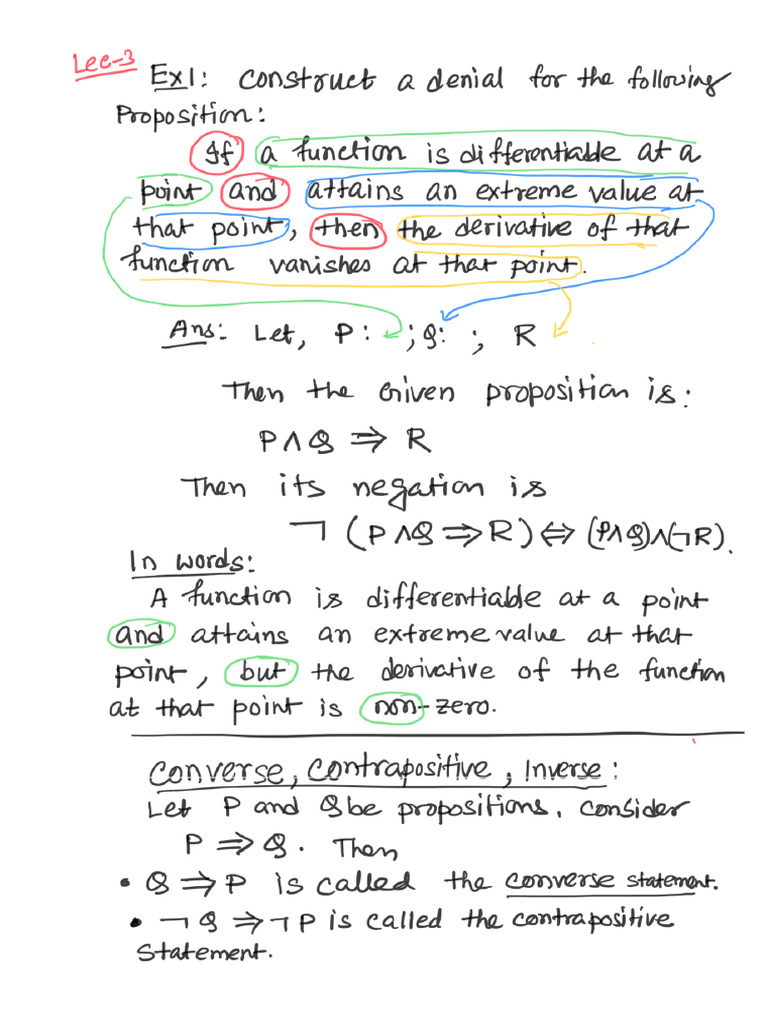 Lec-3
Ex1: Construct a denial for the following
Proposition:
If a function is differentiable at a
point and attains an extreme value at
that point, then the derivative of that
function vanishes at that point.
Ans: Let, P: ; Q: ; R
Then the Given proposition is:
P ∧ Q ⇒ R
Then its negation is
¬ (P ∧ Q ⇒ R) ⇔ (P∧Q)∧(¬R).
In words:
A function is differentiable at a point
and attains an extreme value at that
point, but the derivative of the function
at that point is non-zero.
Converse, Contrapositive, Inverse:
Let P and Q be propositions. Consider
P ⇒ Q. Then
• Q ⇒ P is called the converse statement.
• ¬Q ⇒ ¬P is called the contrapositive
Statement.